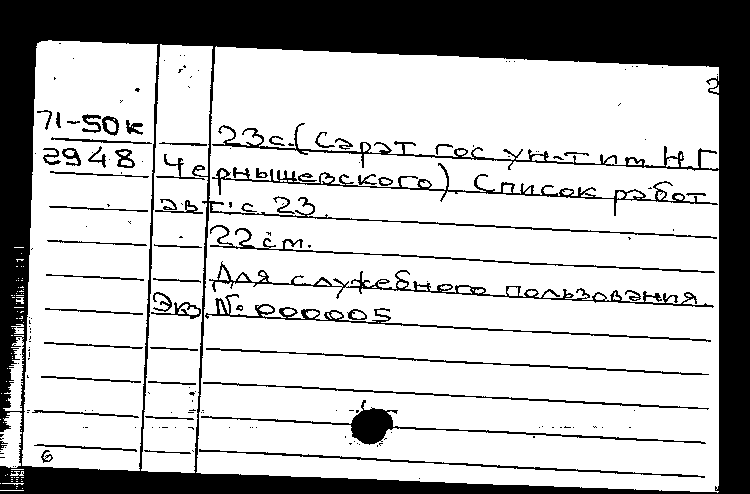 2
71-50к
2948
23с. (Сарат. гос. ун-т им. Н.Г.
Чернышевского). Список работ
авт: с. 23.
22 см.
Для служебного пользования.
Экз. № 000005
6